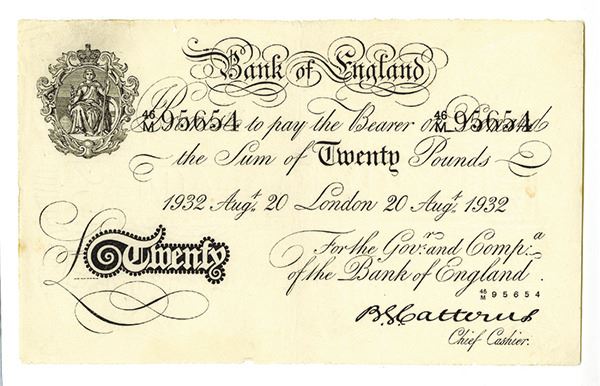 Bank of England
46/M 95654 to pay the Bearer on 46/M 95654
the Sum of Twenty Pounds
1932 Augt. 20 London 20 Augt. 1932
£Twenty
For the Govr. and Compa.
of the Bank of England.
46/M 95654
B.G. Catterns
Chief Cashier.